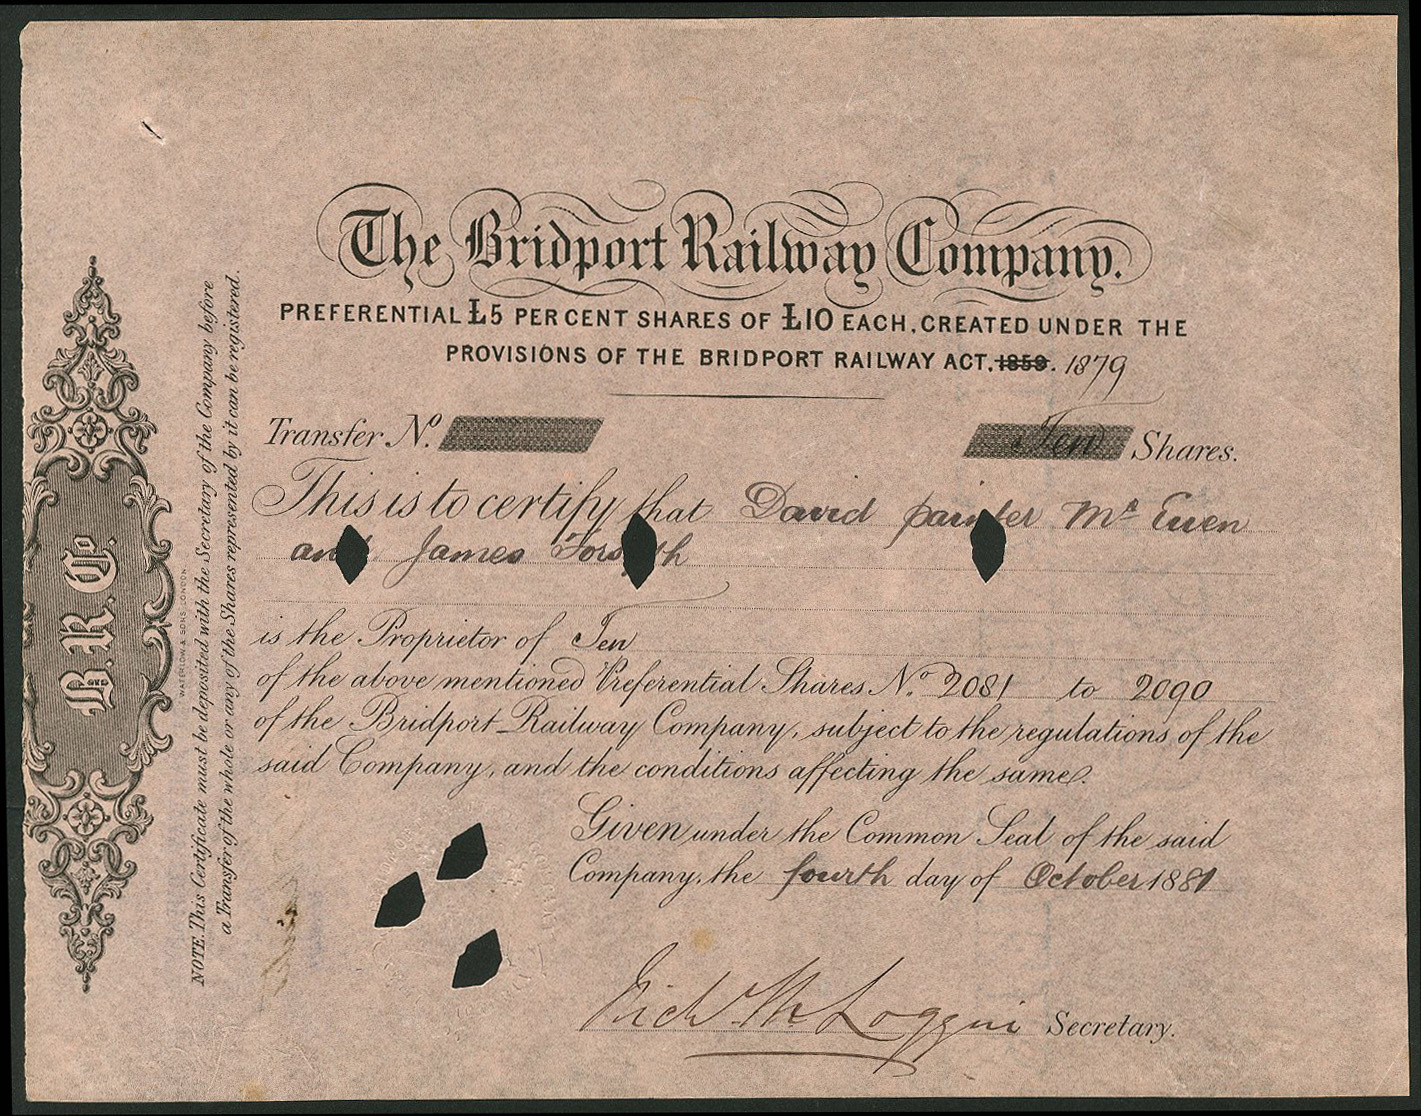 The Bridport Railway Company.
PREFERENTIAL £5 PER CENT SHARES OF £10 EACH, CREATED UNDER THE
PROVISIONS OF THE BRIDPORT RAILWAY ACT, 1859. 1879
Transfer No. Ten Shares.
This is to certify that David painter Mc Ewen
and James Forsyth
is the Proprietor of Ten
of the above mentioned Preferential Shares No. 2081 to 2090
of the Bridport Railway Company, subject to the regulations of the
said Company, and the conditions affecting the same.
Given under the Common Seal of the said
Company, the fourth day of October 1881
Secretary.
NOTE. This Certificate must be deposited with the Secretary of the Company before
a Transfer of the whole or any of the Shares represented by it can be registered.
WATERLOW & SONS LONDON
B.R. Co.